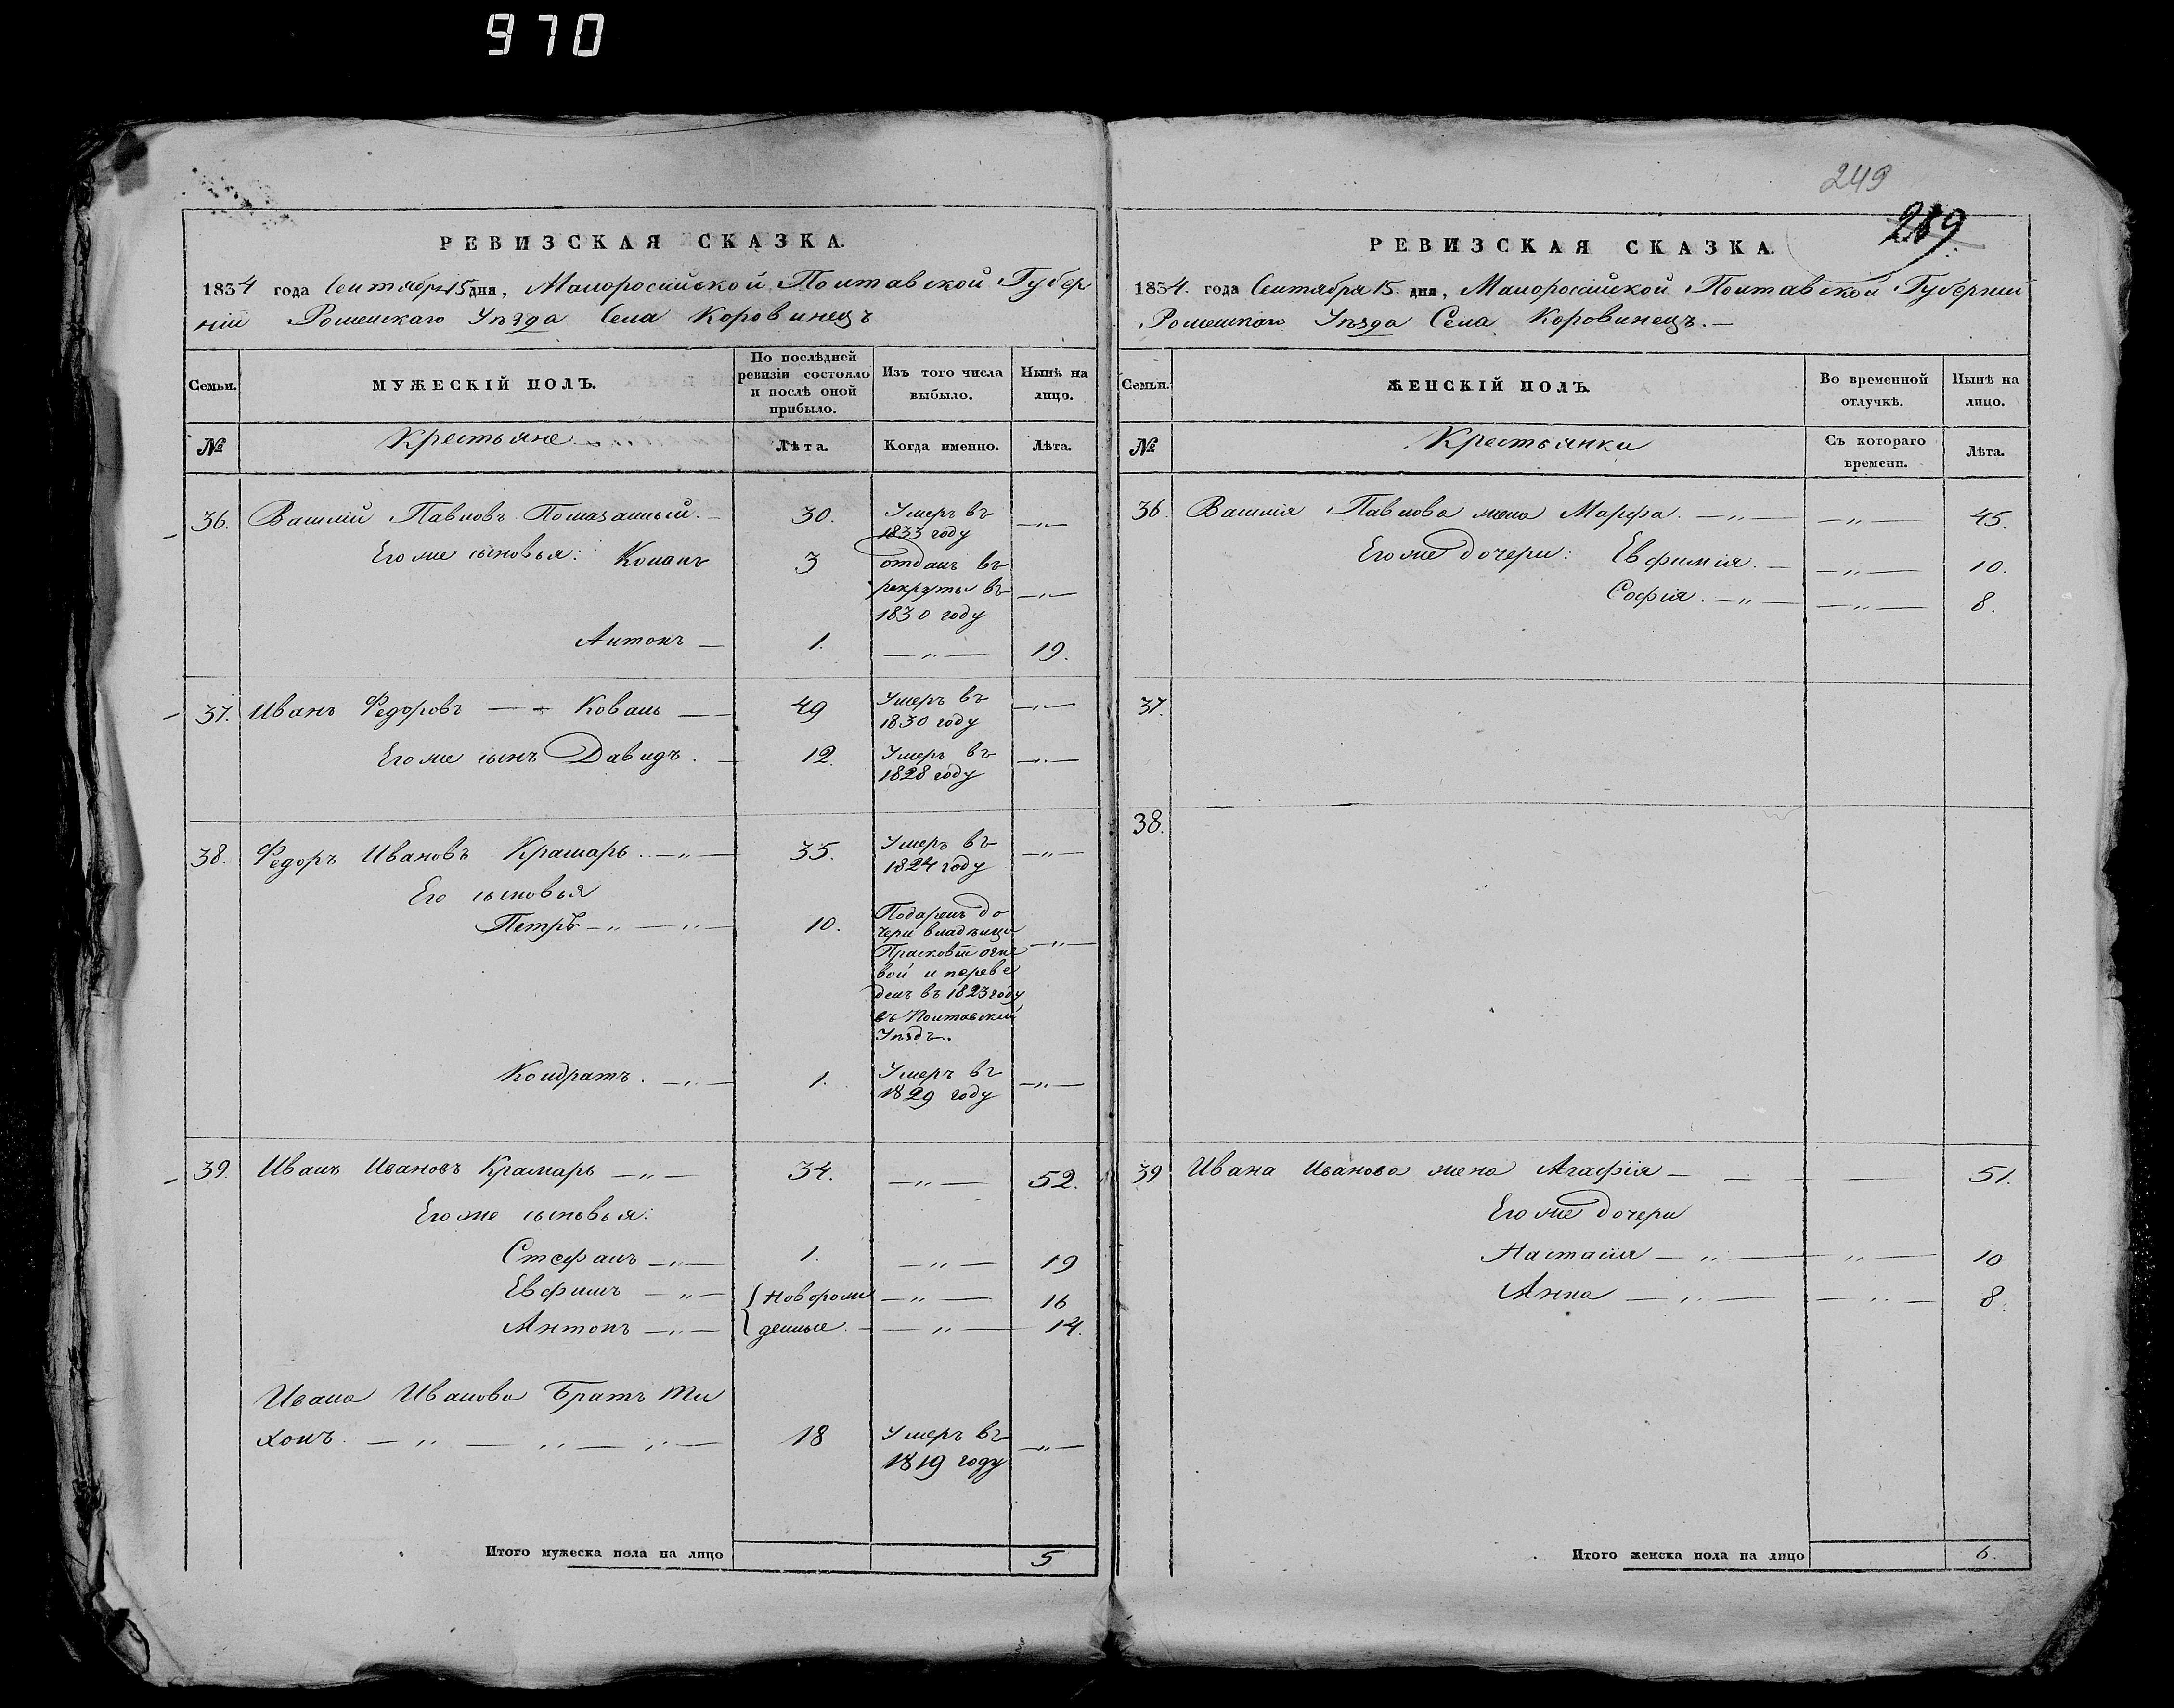 970
РЕВИЗСКАЯ СКАЗКА.
1834 года Сентября 15 дня, Малоросийской Полтавской Губер
ніи Роменскаго Уѣзда Села Коровинецъ
Семьи.
МУЖЕСКІЙ ПОЛЪ.
По послѣдней ревизіи состояло и послѣ оной прибыло.
Изъ того числа выбыло.
Нынѣ на лицо.
№
Крестьяне
Лѣта.
Когда именно.
Лѣта.
36. Василій Павловъ 30. Умеръ въ 1833 году —„—
Его же сыновья: Конанъ 3 отданъ въ рекруты въ 1830 году —„—
Антонъ — 1. —„— 19.
37. Иванъ Федоровъ — Коваль — 49 Умеръ въ 1830 году —„—
Его же сынъ Давидъ. — 12. Умеръ въ 1828 году —„—
38. Федоръ Ивановъ Крамарь. —„— 35. Умеръ въ 1824 году —„—
Его сыновья
Петръ —„— „— 10. Подаренъ до
чери владѣлицы
Прасковіи
вой и переве
денъ въ 1823 году
въ Полтавскій
Уѣздъ. —„—
Кондратъ. —„— 1. Умеръ въ 1829 году —„—
39. Иванъ Ивановъ Крамарь —„— 34. —„— 52.
Его же сыновья:
Стефанъ —„— 1. —„— 19
Евфимъ —„— { Новорож —„— 16
Антонъ —„— { денные. —„— 14.
Ивана Иванова Братъ Ти
хонъ. —„—„—„— 18 Умеръ въ 1819 году —„—
Итого мужеска пола на лицо 5
249
289
РЕВИЗСКАЯ СКАЗКА.
1834. года Сентября 15. дня, Малоросійской Полтавской Губерніи
Роменскаго Уѣзда Села Коровинецъ. —
Семьи.
ЖЕНСКІЙ ПОЛЪ.
Во временной отлучкѣ.
Нынѣ на лицо.
№
Крестьянки
Съ котораго времени.
Лѣта.
36. Василія Павлова жена Марфа. —„— —„— 45.
Его же дочери: Евфимія. — —„— 10.
Софія. —„— —„— 8.
37.
38.
39 Ивана Иванова жена Агафія — — — 51.
Его же дочери
Настасія —„— „— 10
Анна —„— —„— 8.
Итого женска пола на лицо 6.